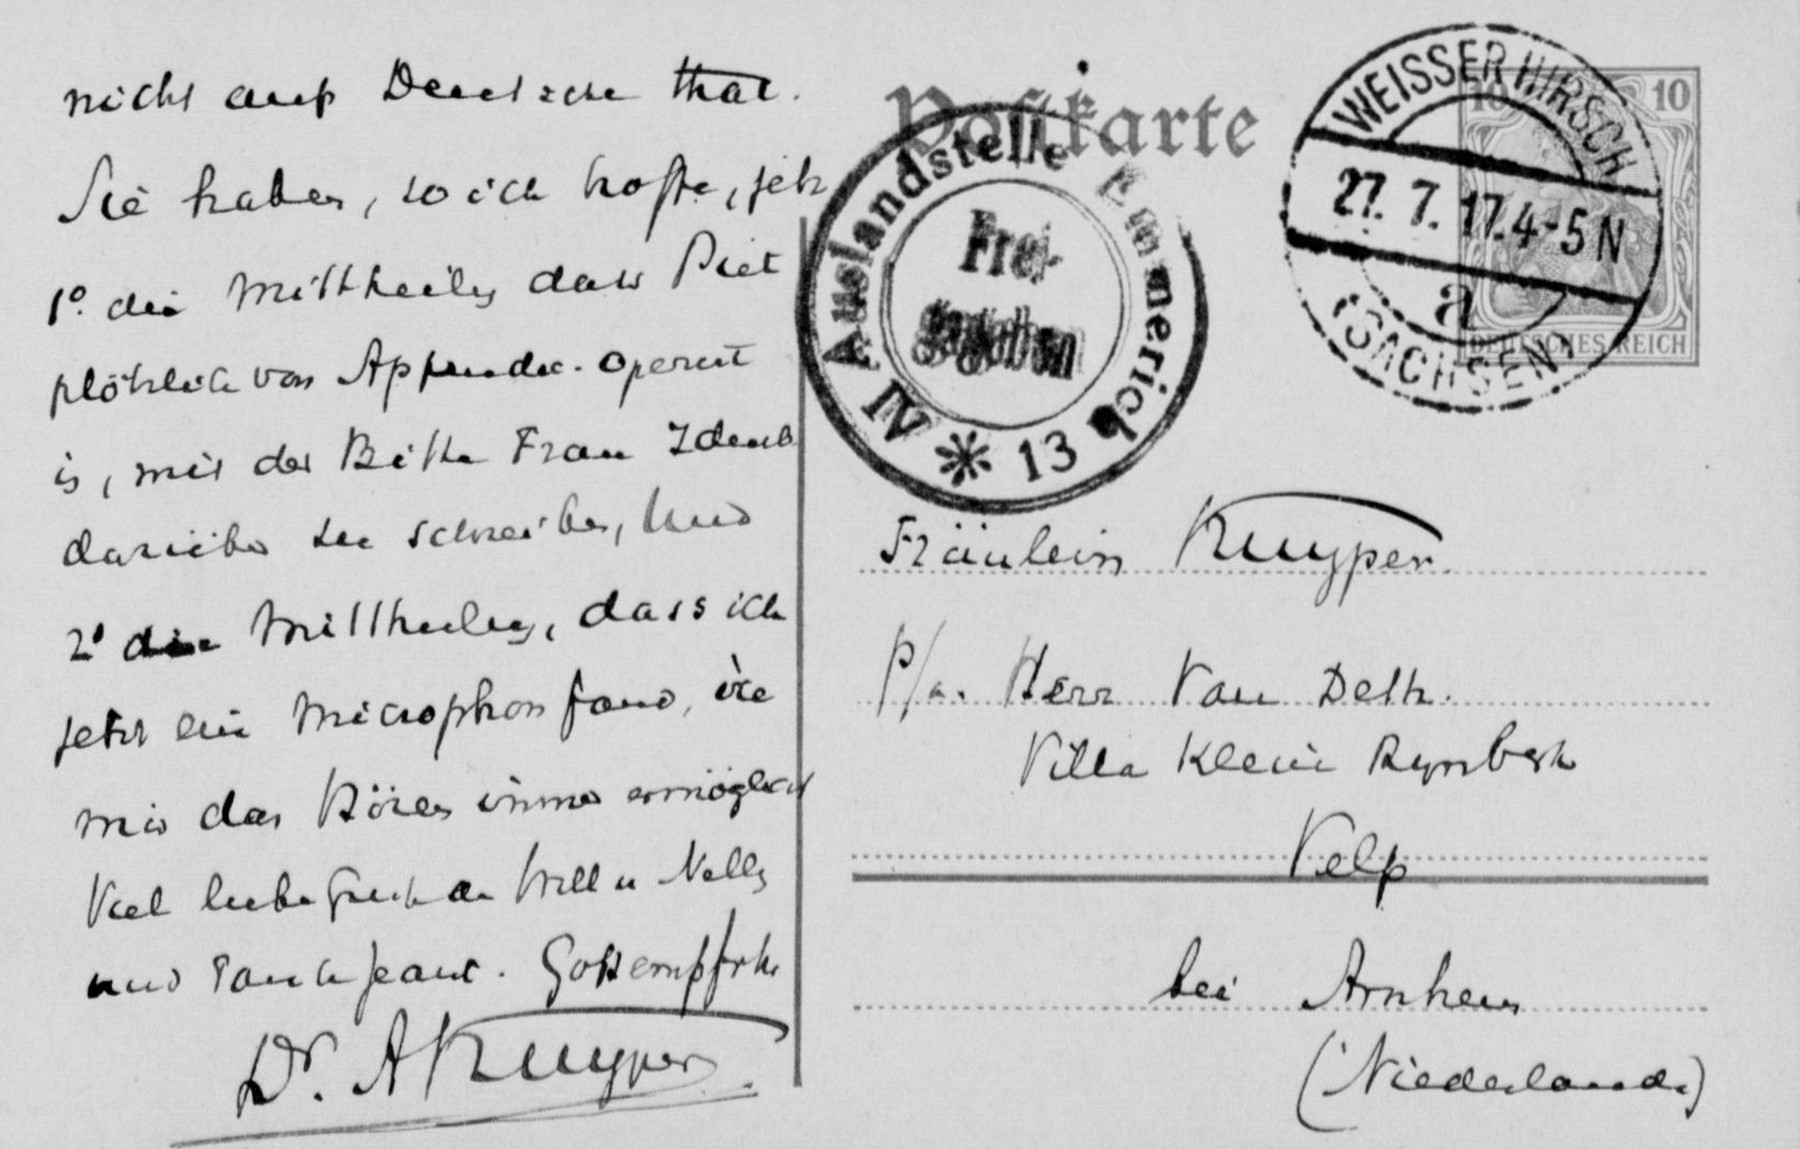 nicht auf Deutsche that.
Sie haben, so ich hoffe, jetz
1º. die Mittheilg dass Piet
plötzlich von Appendic. operirt
is, mit der Bitte Frau Idenb
darüber zu schreiben, und
2º die Mittheilung, dass ich
jetzt ein Microphon fand, die
mir das Hören immer ermöglicht
Viel liebe Grüsse an Will u Nelly
und Tante Jeanne. Gottempfehle
Dr. AKuyper
Postkarte
IV Auslandstelle Emmerich
Frei-
gegeben
* 13 b
WEISSER HIRSCH
27. 7. 17. 4-5 N
a
(SACHSEN)
10 10
DEUTSCHES REICH
Fräulein Kuyper.
P/a. Herr Van Deth.
Villa Klein Rynbergh
Velp
bei Arnhem
(Niederlande)